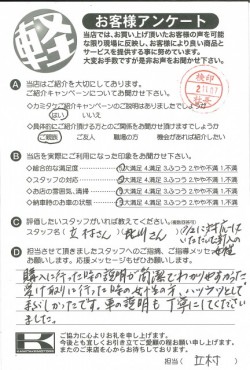 軽
お客様アンケート
当店では、お買い上げ頂いたお客様の声を可能
な限り現場に反映し、お客様により良い商品と
サービスを提供する事に努めています。
大変お手数ですが是非お声をお聞かせ下さい。
A 当店はご紹介を大切にしております。
ご紹介キャンペーンについてお聞かせ下さい。
はい いいえ
ご親族 ご友人 職場の方 機会があれば紹介したい
B 当店を実際にご利用になった印象をお聞かせ下さい。
◇総合的な満足度 5大満足 4.満足 3.ふつう 2.やや不満 1.不満
◇スタッフの対応 5大満足 4.満足 3.ふつう 2.やや不満 1.不満
◇お店の雰囲気、清掃 5大満足 4.満足 3.ふつう 2.やや不満 1.不満
◇納車時のお車の状態 5大満足 4.満足 3.ふつう 2.やや不満 1.不満
C 評価したいスタッフがいれば教えてください。
スタッフ名( 立村さん )( 北川さん )
D 担当させて頂きましたスタッフへのご指摘、ご指導
お願いします。応援メッセージもぜひお願いします。
購入に行った時の説明が簡潔でわかりやすかった
受け取りに行った時の女性の方、ハツラツとして
まぶしかったです。車の説明も丁寧にしてくださ
いました。
ご協力に心よりお礼を申し上げます。
今後とも宜しくお引き立てご愛顧の程お願い申し上げます。
またのご来店を心からお待ちしております。
担当( 立村 )